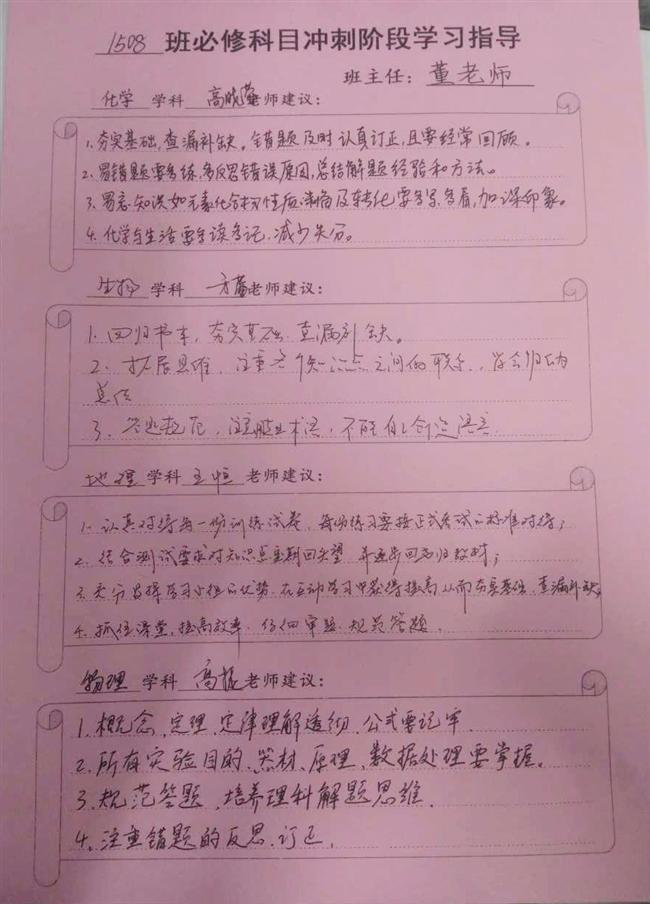 1508 班必修科目冲刺阶段学习指导
班主任：董老师
化学 学科 高 老师建议：
1、夯实基础，查漏补缺。错题及时认真订正，且要经常回顾。
2、易错题要多练，多反思错误原因，总结解题经验和方法。
3、易忘知识如元素化合物性质、制备及转化要多写、多看，加深印象。
4、化学与生活要多读多记，减少失分。
生物 学科 方 老师建议：
1、回归书本，夯实基础、查漏补缺。
2、拓展思维，注重各个知识点之间的联系，学会归纳
总结
3、答题规范，注意专业术语，不能自创造语言
地理 学科 王恒 老师建议：
1、认真对待每一份训练试卷，每份练习要按正式考试的标准对待；
2、结合测试要求对知识点定期回头望，并逐步回归教材；
3、充分发挥学习小组的优势，在互动学习中获得提高，从而夯实基础，查漏补缺。
4、抓住课堂，提高效率，仔细审题，规范答题。
物理 学科 高 老师建议：
1、概念、定理、定律理解透彻，公式要记牢.
2、所有实验目的、器材、原理、数据处理要掌握。
3、规范答题，培养理科解题思维.
4、注重错题的反思、订正.